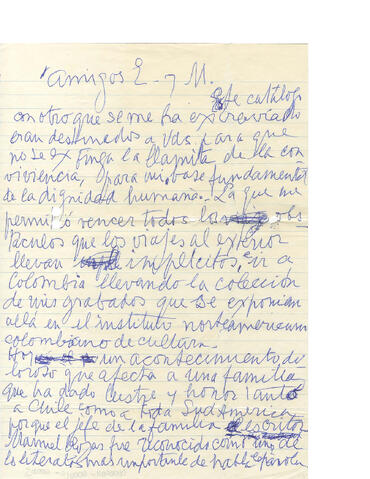 Amigos E. y M.
Este catálogo
con otro que se me ha extraviado
eran destinados a Vds. para que
no se extinga la llamita de la con
vivencia, para mi, base fundamental
de la dignidad humana. La que me
permitió vencer todos los obs
táculos que los viajes al exterior
llevan implícitos, ir a
Colombia llevando la colección
de mis grabados que se exponian
allá en el instituto norteamericano
colombiano de cultura.
Hoy un acontecimiento do
loroso que afecta a una familia
que ha dado lustre y honor tanto
a Chile como a toda Sud America
porque el jefe de la familia
Manuel Rojas fue reconocido como uno de
los literatos mas importante de habla